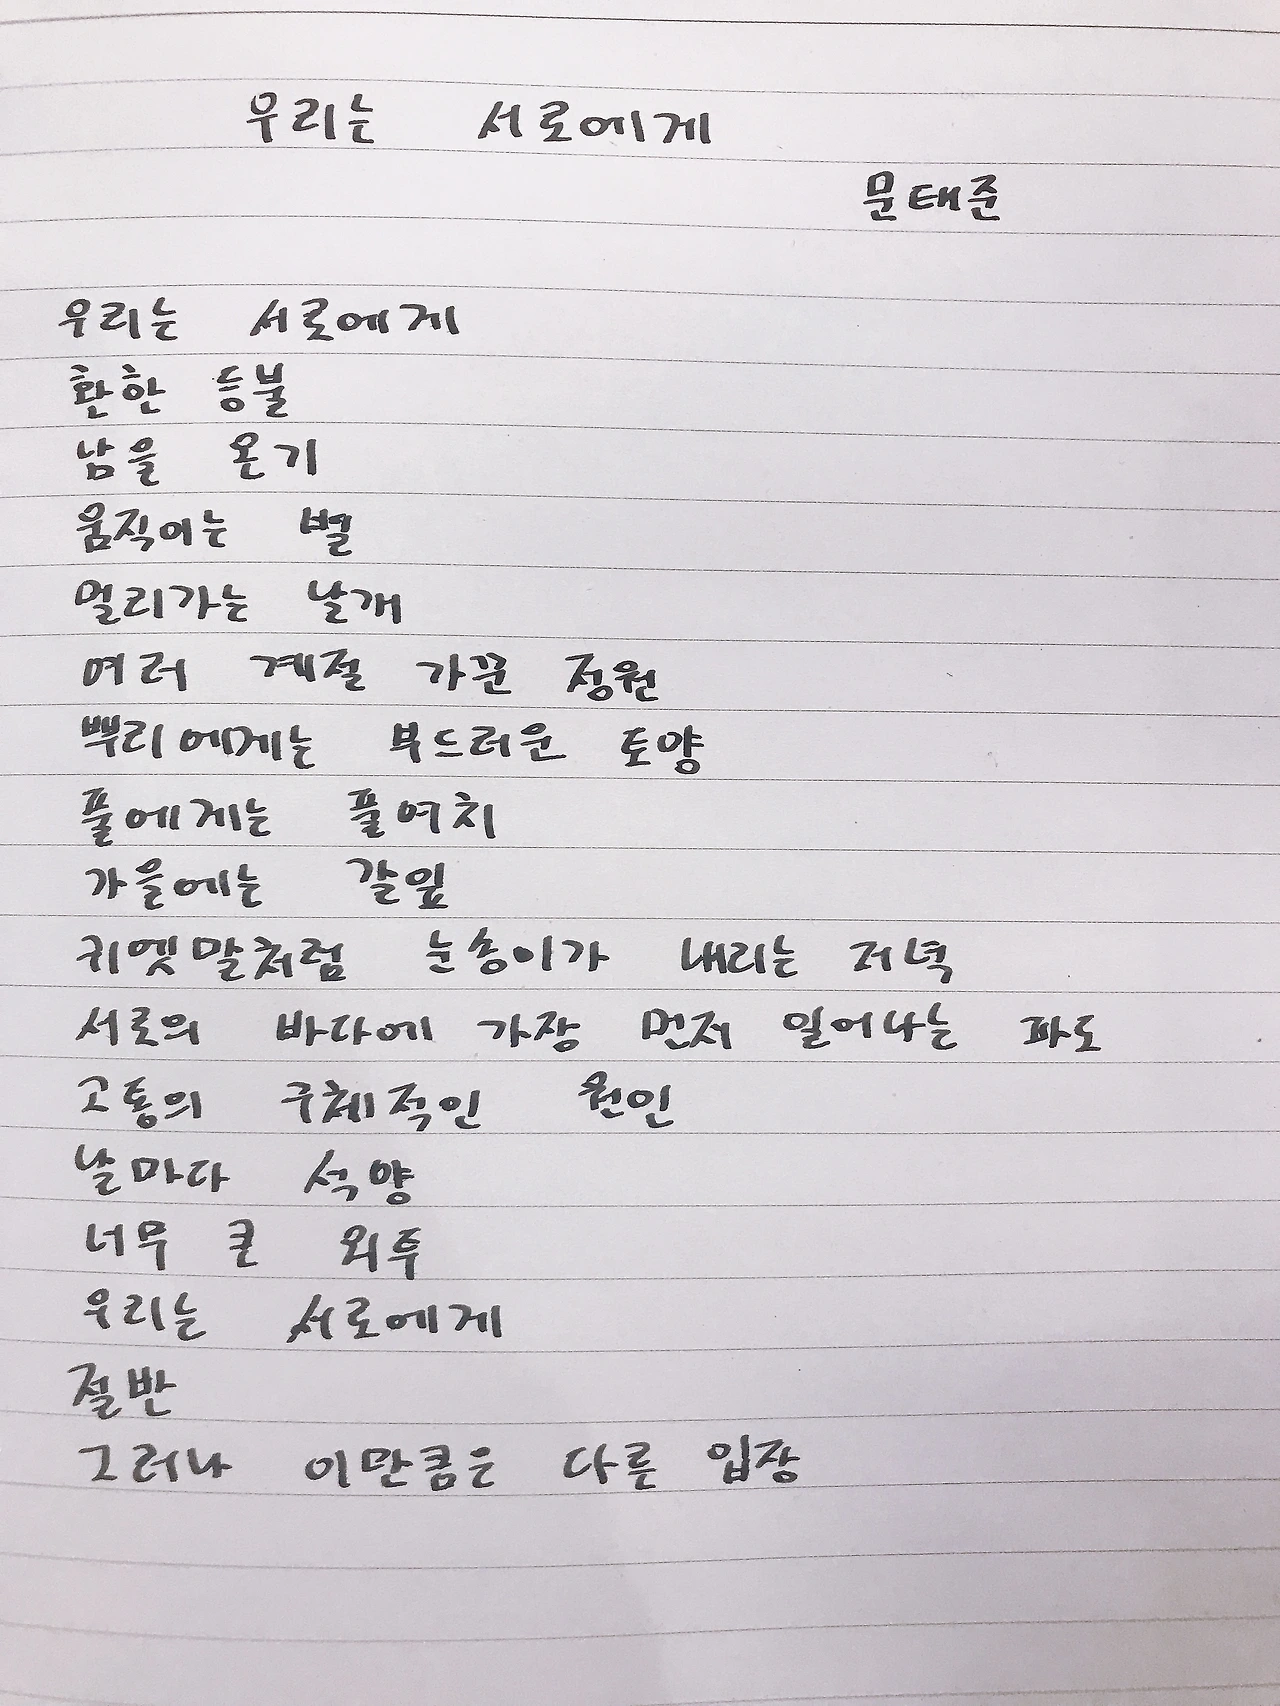 우리는 서로에게
문태준
우리는 서로에게
환한 등불
남을 온기
움직이는 별
멀리가는 날개
여러 계절 가꾼 정원
뿌리에게는 부드러운 토양
풀에게는 풀여치
가을에는 갈잎
귀엣말처럼 눈송이가 내리는 저녁
서로의 바다에 가장 먼저 일어나는 파도
고통의 구체적인 원인
날마다 석양
너무 큰 외투
우리는 서로에게
절반
그러나 이만큼은 다른 입장